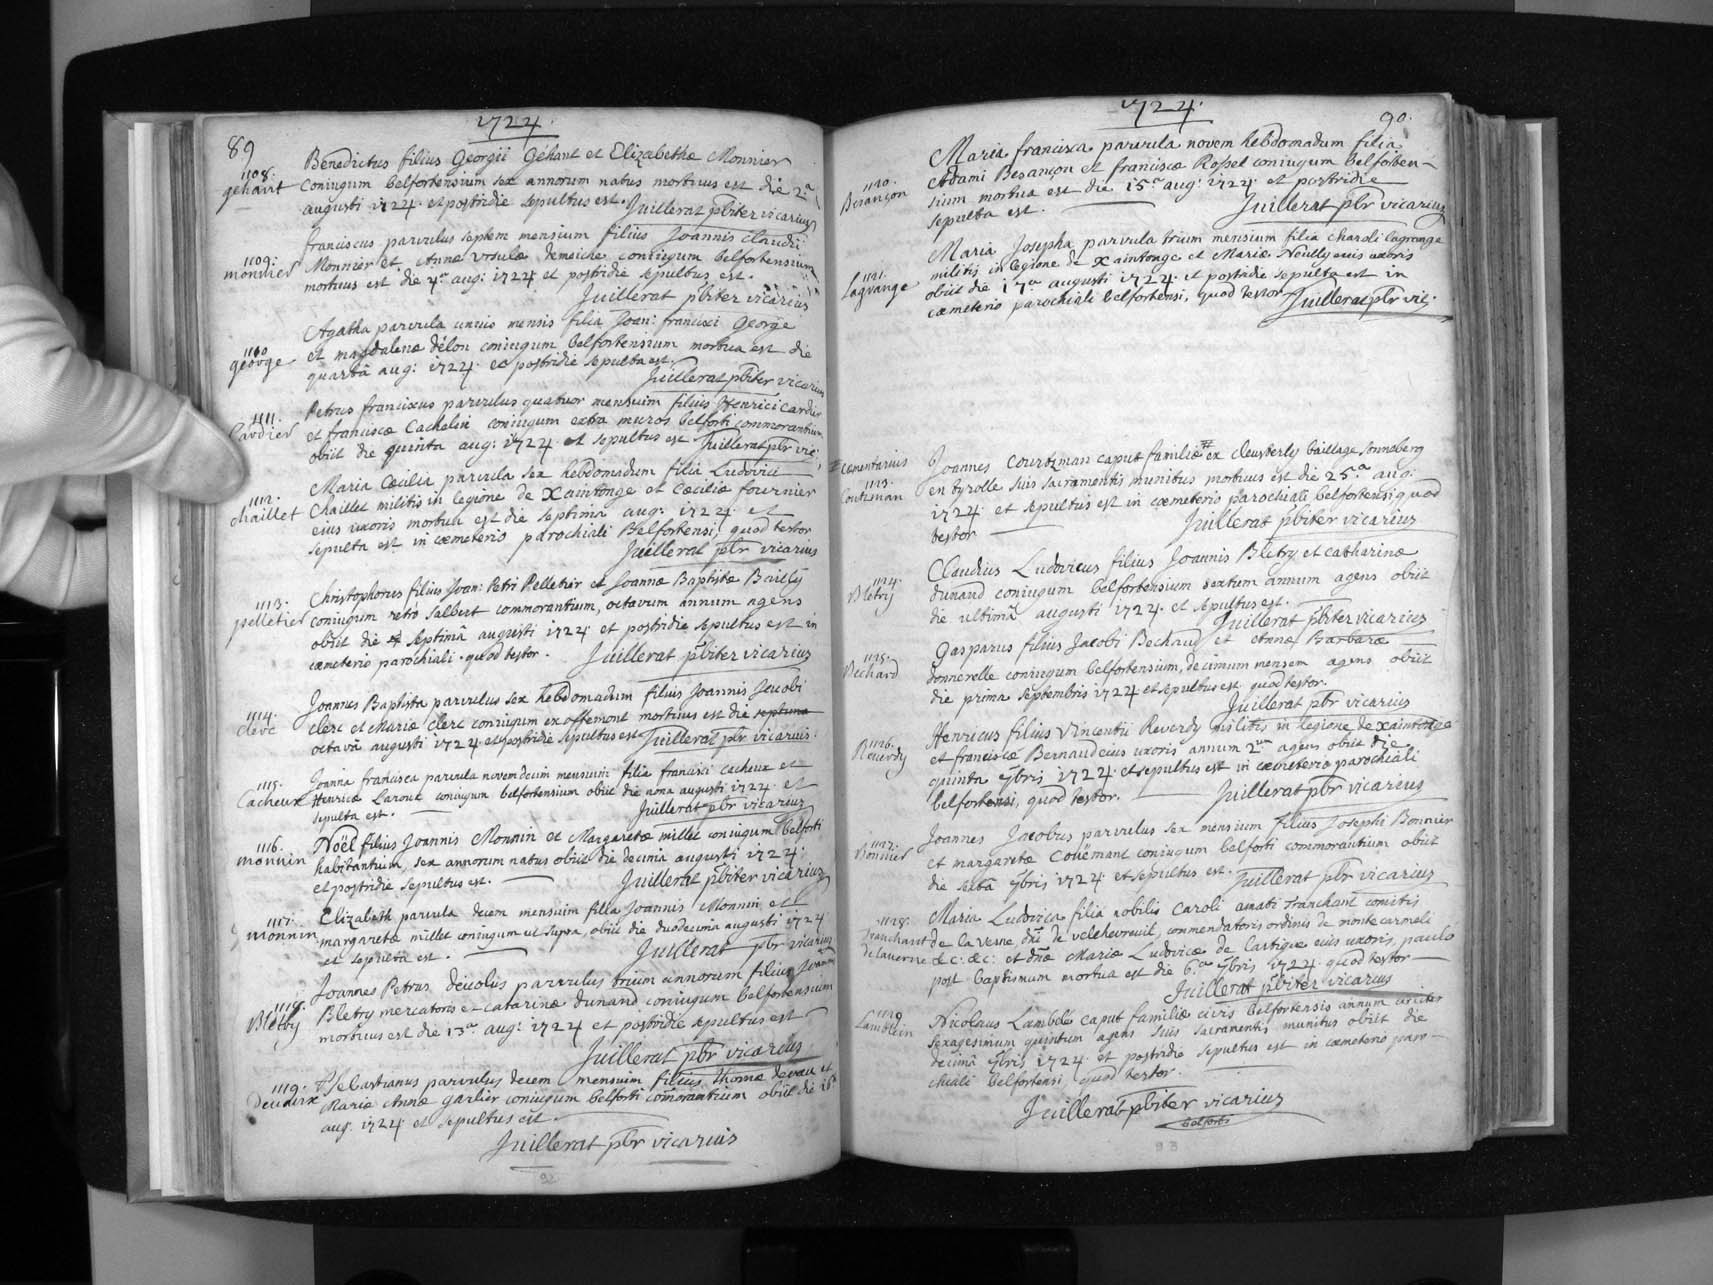 89
1724.
1108.
gehant
Benedictus filius Georgii Gehant et Elizabethæ Monnier
coniugum belfortensium sex annorum natus mortuus est die 2ª
augusti 1724. et postridie sepultus est. Juillerat pbiter vicarius
1109.
monnier
franciscus parvulus septem mensium filius Joannis claudii
Monnier et Annæ Ursulæ demeiche coniugum belfortensium
mortuus est die 4ª aug: 1724 et postridie sepultus est.
Juillerat pbiter vicarius
1110
george
Agatha parvula unius mensis filia Joan: francisci George
et magdalenæ délon coniugum belfortensium mortua est die
quartâ aug: 1724. et postridie sepulta est.
Juillerat pbiter vicarius
1111.
Cardier
Petrus franciscus parvulus quatuor mensium filius Henrici cardier
et franciscæ Cachelin coniugum extra muros belforti commorantium
obiit die quinta aug: 1724. et sepultus est Juillerat pbr vic:
1112.
chaillet
Maria Cæcilia parvula sex hebdomadum filia Ludovici
Chaillet militis in legione de Xaintonge et Cæciliæ fournier
eius uxoris mortua est die septimâ aug: 1724. et
sepulta est in cæmeterio parochiali Belfortensi, quod testor
Juillerat pbr vicarius
1113.
pelletier
Christophorus filius Joan: Petri Pelletier et Joannæ Baptistæ Bailly
coniugum retrò salbert commorantium, octavum annum agens
obiit die septimâ augusti 1724. et postridie sepultus est in
cæmeterio parochiali. quod testor. Juillerat pbiter vicarius
1114.
clerc
Joannes Baptista parvulus sex hebdomadum filius Joannis Jacobi
clerc et Mariæ clerc coniugum ex offemont mortuus est die septima
octavâ augusti 1724. et postridie sepultus est Juillerat pbr vicarius.
1115.
Cacheux
Joanna francisca parvula novemdecim mensium filia francisci cacheux et
Henricæ Larout coniugum belfortensium obiit die nona augusti 1724. et
sepulta est.
Juillerat pbr vicarius
1116.
monnin
Noël filius Joannis Monnin et Margaretæ millet coniugum belforti
habitantium, sex annorum natus obiit die decima augusti 1724.
et postridie sepultus est. Juillerat pbiter vicarius
1117.
monnin
Elizabeth parvula decem mensium filia Joannis Monnin et
margaretæ millet coniugum ut supra, obiit die duodecima augusti 1724
et sepulta est. Juillerat pbr vicarius
1118.
Bletry
Joannes Petrus deicolus parvulus trium annorum filius Joannis
Bletry mercatoris et catarinæ dunand coniugum belfortensium
mortuus est die 13ª aug: 1724 et postridie sepultus est
Juillerat pbr vicarius
1119.
Devaux
Sebastianus parvulus decem mensium filius thomæ devau et
Mariæ Annæ garlier coniugum belforti comorantium obiit die 16ª
aug. 1724. et sepultus est.
Juillerat pbr vicarius
92
1724.
90.
1120.
Besançon
Maria francisca parvula novem hebdomadum filia
Adami Besançon et franciscæ Rossel coniugum belforten-
sium mortua est die 15ª aug: 1724. et postridie
sepulta est. Juillerat pbr vicarius
1121.
Lagrange
Maria Josepha parvula trium mensium filia Charoli Lagrange
militis in legione de Xaintonge et Mariæ Neully eius uxoris
obiit die 17ª augusti 1724. et postridie sepulta est in
cæmeterio parochiali belfortensi, quod testor Juillerat pbr vic.
# cæmentarius
1123.
Contzman
Joannes Courtzman caput familiæ # ex cleusterly bailliage sonneberg
en tyrolle suis sacramentis munitus mortuus est die 25ª aug:
1724. et sepultus est in cæmeterio parochiali belfortensi quod
testor Juillerat pbiter vicarius
1124.
Bletry
Claudius Ludovicus filius Joannis Bletry et catharinæ
dunand coniugum belfortensium sextum annum agens obiit
die ultimâ augusti 1724. et sepultus est.
Juillerat pbiter vicarius
1125.
Bechard
Gasparus filius Jacobi Bechaud et Annæ Barbaræ
donnerelle coniugum belfortensium, decimum mensem agens obiit
die prima septembris 1724 et sepultus est quod testor.
Juillerat pbr vicarius
1126.
Reverdy
Henricus filius Vincentii Reverdy militis in legione de xaintonge
et franciscæ Bernaud eius uxoris annum 2um agens obiit die
quinta 7bris 1724. et sepultus est in cæmeterio parochiali
belfortensi, quod testor. Juillerat pbr vicarius
1127.
Bonnier
Joannes Jacobus parvulus sex mensium filius Josephi Bonnier
et margaretæ Couëmant coniugum belforti commorantium obiit
die sextâ 7bris 1724. et sepultus est. Juillerat pbr vicarius
1128.
Tranchant
de laverne
Maria Ludovica filia nobilis Caroli amati Tranchant comitis
de la Verne, dni de velchevreuil, commendatoris ordinis de monte carmeli
&c: &c: et dnæ Mariæ Ludovicæ de Castique eius uxoris, paulò
post baptismum mortua est die 6.ª 7bris 1724. quod testor
Juillerat pbiter vicarius
1129
Lamblein
Nicolaus Lamblé caput familiæ civis belfortensis annum circiter
sexagesimum quintum agens suis sacramentis munitus obiit die
decimâ 7bris 1724. et postridie sepultus est in cæmeterio paro-
chiali belfortensi quod testor.
Juillerat pbiter vicarius
belforti
93